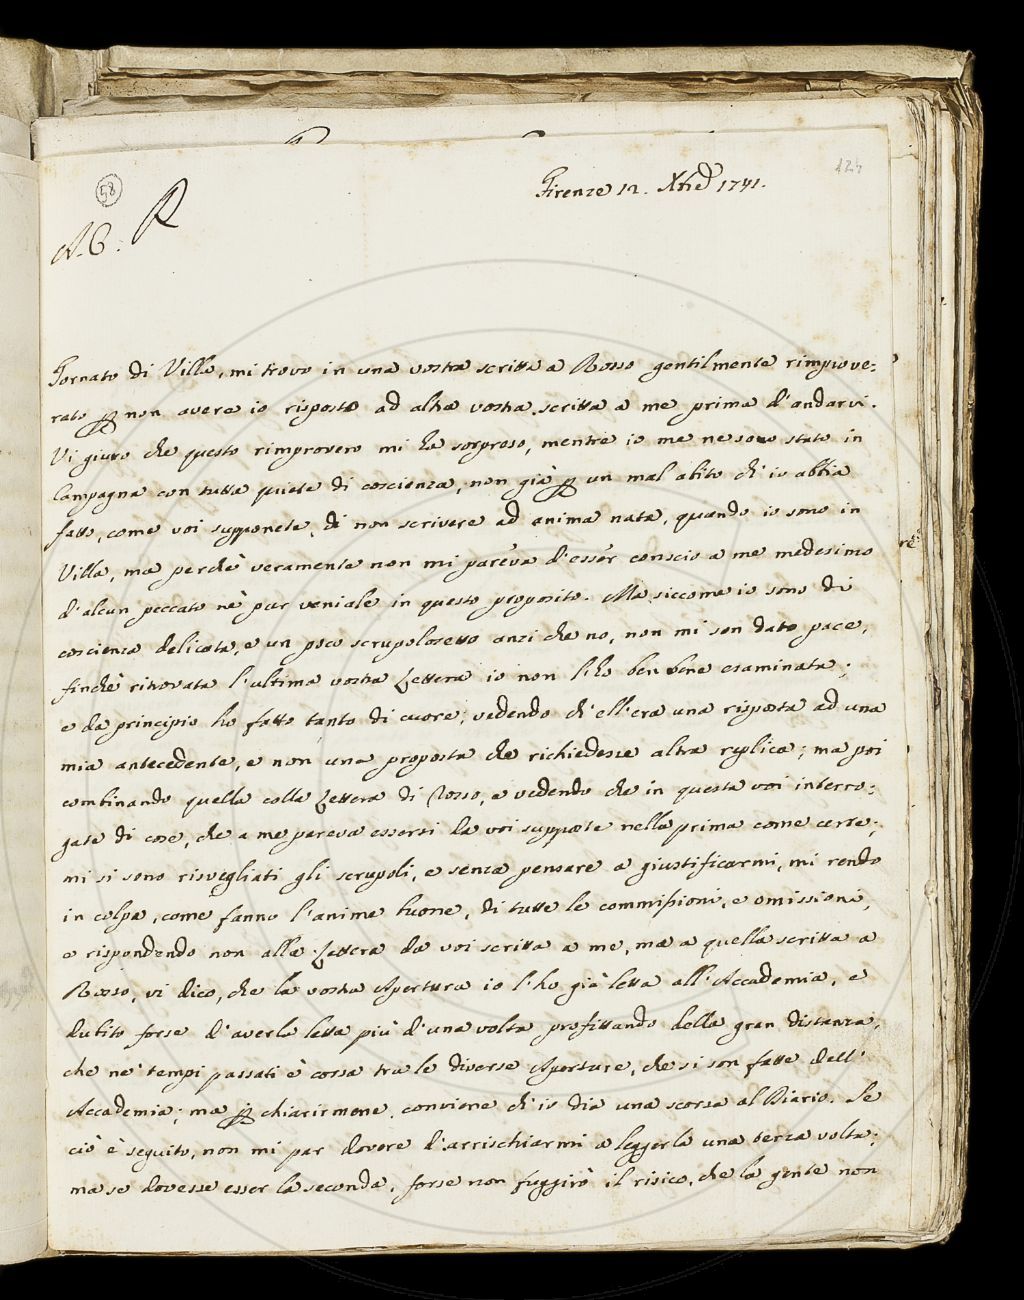 58
124
Firenze 12. Xbre 1741.
A. C. R
Tornato di Villa, mi trovo in una vostra scritta a Rosso gentilmente rimprove-
rato p non avere io risposto ad altra vostra scritta a me prima d'andarvi.
Vi giuro che questo rimprovero mi ha sorpreso, mentre io me ne sono stato in
Campagna con tutta quiete di coscienza, non già p un mal abito ch'io abbia
fatto, come voi supponete, di non scrivere ad anima nata, quando io sono in
Villa, ma perchè veramente non mi pareva d'esser conscio a me medesimo
d'alcun peccato nè pur veniale in questo proposito. Ma siccome io sono di
coscienza delicata, e un poco scrupolosetto anzi che no, non mi son dato pace,
finchè ritrovata l'ultima vostra Lettera io non l'ho ben bene esaminata;
e da principio ho fatto tanto di cuore, vedendo ch'ell'era una risposta ad una
mia antecedente, e non una proposta che richiedesse altra replica; ma poi
combinando quella colla Lettera di Rosso, e vedendo che in questa voi interro-
gate di cose, che a me pareva essersi da voi supposte nella prima come certe;
mi si sono risvegliati gli scrupoli, e senza pensare a giustificarmi, mi rendo
in colpa, come fanno l'anime buone, di tutte le commissioni, e omissioni,
e rispondendo non alla Lettera da voi scritta a me, ma a quella scritta a
Rosso, vi dico, che la vostra Apertura io l'ho già letta all'Accademia, e
dubito forse d'averla letta più d'una volta profittando della gran distanza,
che ne' tempi passati è corsa tra le diverse Aperture, che si son fatte dell'
Accademia; ma p chiarirmene, conviene ch'io dia una scorsa al Diario. Se
ciò è seguito, non mi par dovere d'arrischiarmi a leggerla una terza volta;
ma se dovesse esser la seconda, forse non fuggirò il risico, che la gente non